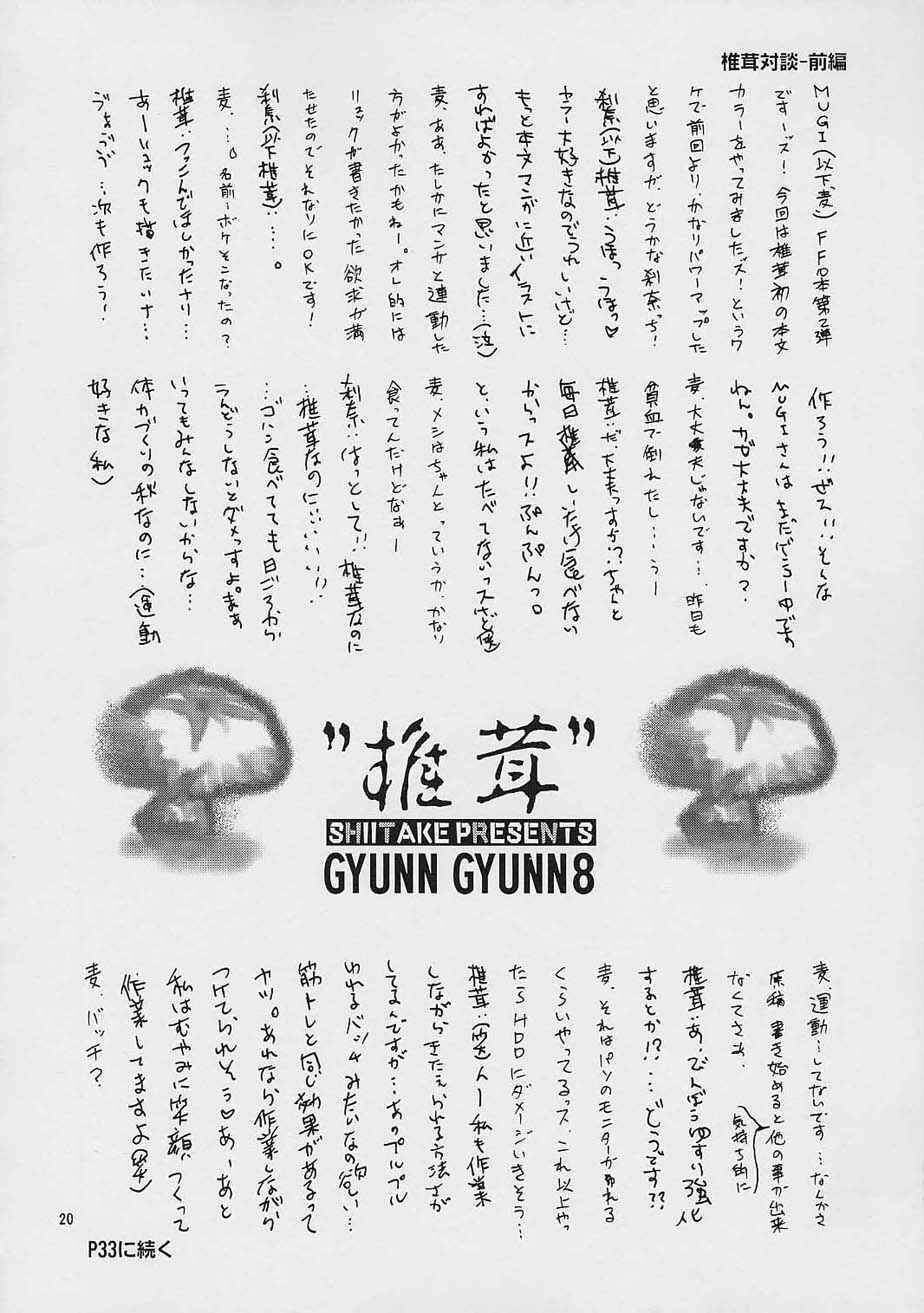 椎茸対談-前編
MUGI(以下麦)FF8本第2弾
ですーズ!今回は椎茸初の本文
カラーをやってみましたッズ!というワ
ケで前回よりかなりパワーアップした
と思いますがどうかな刹奈っち!
刹奈(以下)椎茸:うほっうほっ♡
カラー大好きなのでうれしいけど…
もっと本文マンガに近いイラストに
すればよかったと思いました…(泣)
麦、ああ、たしかにマンガと連動した
方がよかったかもねー。オレ的には
リュックが書きたかった欲求が満
たせたのでそれなりにOKです!
刹奈(以下椎茸):…。
麦、…。名前ーボケそこなったの?
椎茸:ファンんでほしかったナリ…
あーリュックも描きたいナ…
うょごうゔ…次も作ろう!
作ろう!!ゼス!!そんな
MUGIさんはまだげろーゆです
ねん。カゼ大丈夫ですか?
麦、大丈夫じゃないです…、昨日も
貧血で倒れたし…うー
椎茸:だ、大丈夫っすか!?ちゃんと
毎日椎茸しいたけ食べない
からっスよ!!ぷんぷんっ。
という私はたべてないっスけど(笑)
麦、メシはちゃんとっていうか、かなり
食ってんだけどなぁー
刹奈:はっとして!!椎茸なのに
…椎茸なのにいいいい!!
…ゴハン食べてても日ごろから
うんどうしないとダメっすよ。まぁ
いってもみんなしないからな…
体力づくりの秋なのに…(運動
好きな私)
”椎茸”
SHIITAKE PRESENTS
GYUNN GYUNN8
麦、運動ーしてないです…なんかさ
原稿書き始めると他の事が出来
なくてさぁ
気持ち的に
椎茸:あ、でんぼうゆすり強化
するとか!?…どうっす??
麦、それはパソのモニターがゆれる
くらいやってるっス、これ以上やっ
たらHDDにダメージいきそう…
椎茸:(笑)んー私も作業
しながらきたえられる方法さが
してるんですが…あのプルプル
ゆれるバンドみたいなの欲しい…
筋トレと同じ効果があるって
ヤツ。あれなら作業しながら
つけてられそう♡あーあと
私はむやみに笑顔つくって
作業してますよ(笑)
麦、バッチ?
20
P33に続く